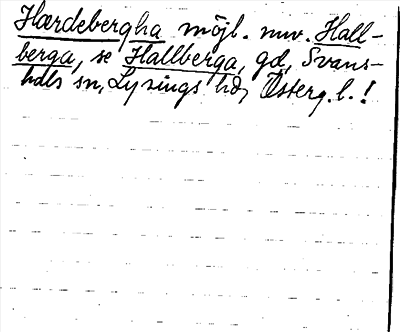 Hærdebergha möjl. nuv. Hall-
berga, se Hallberga, gd, Svans-
hals sn, Lysings hd, Österg. l.!